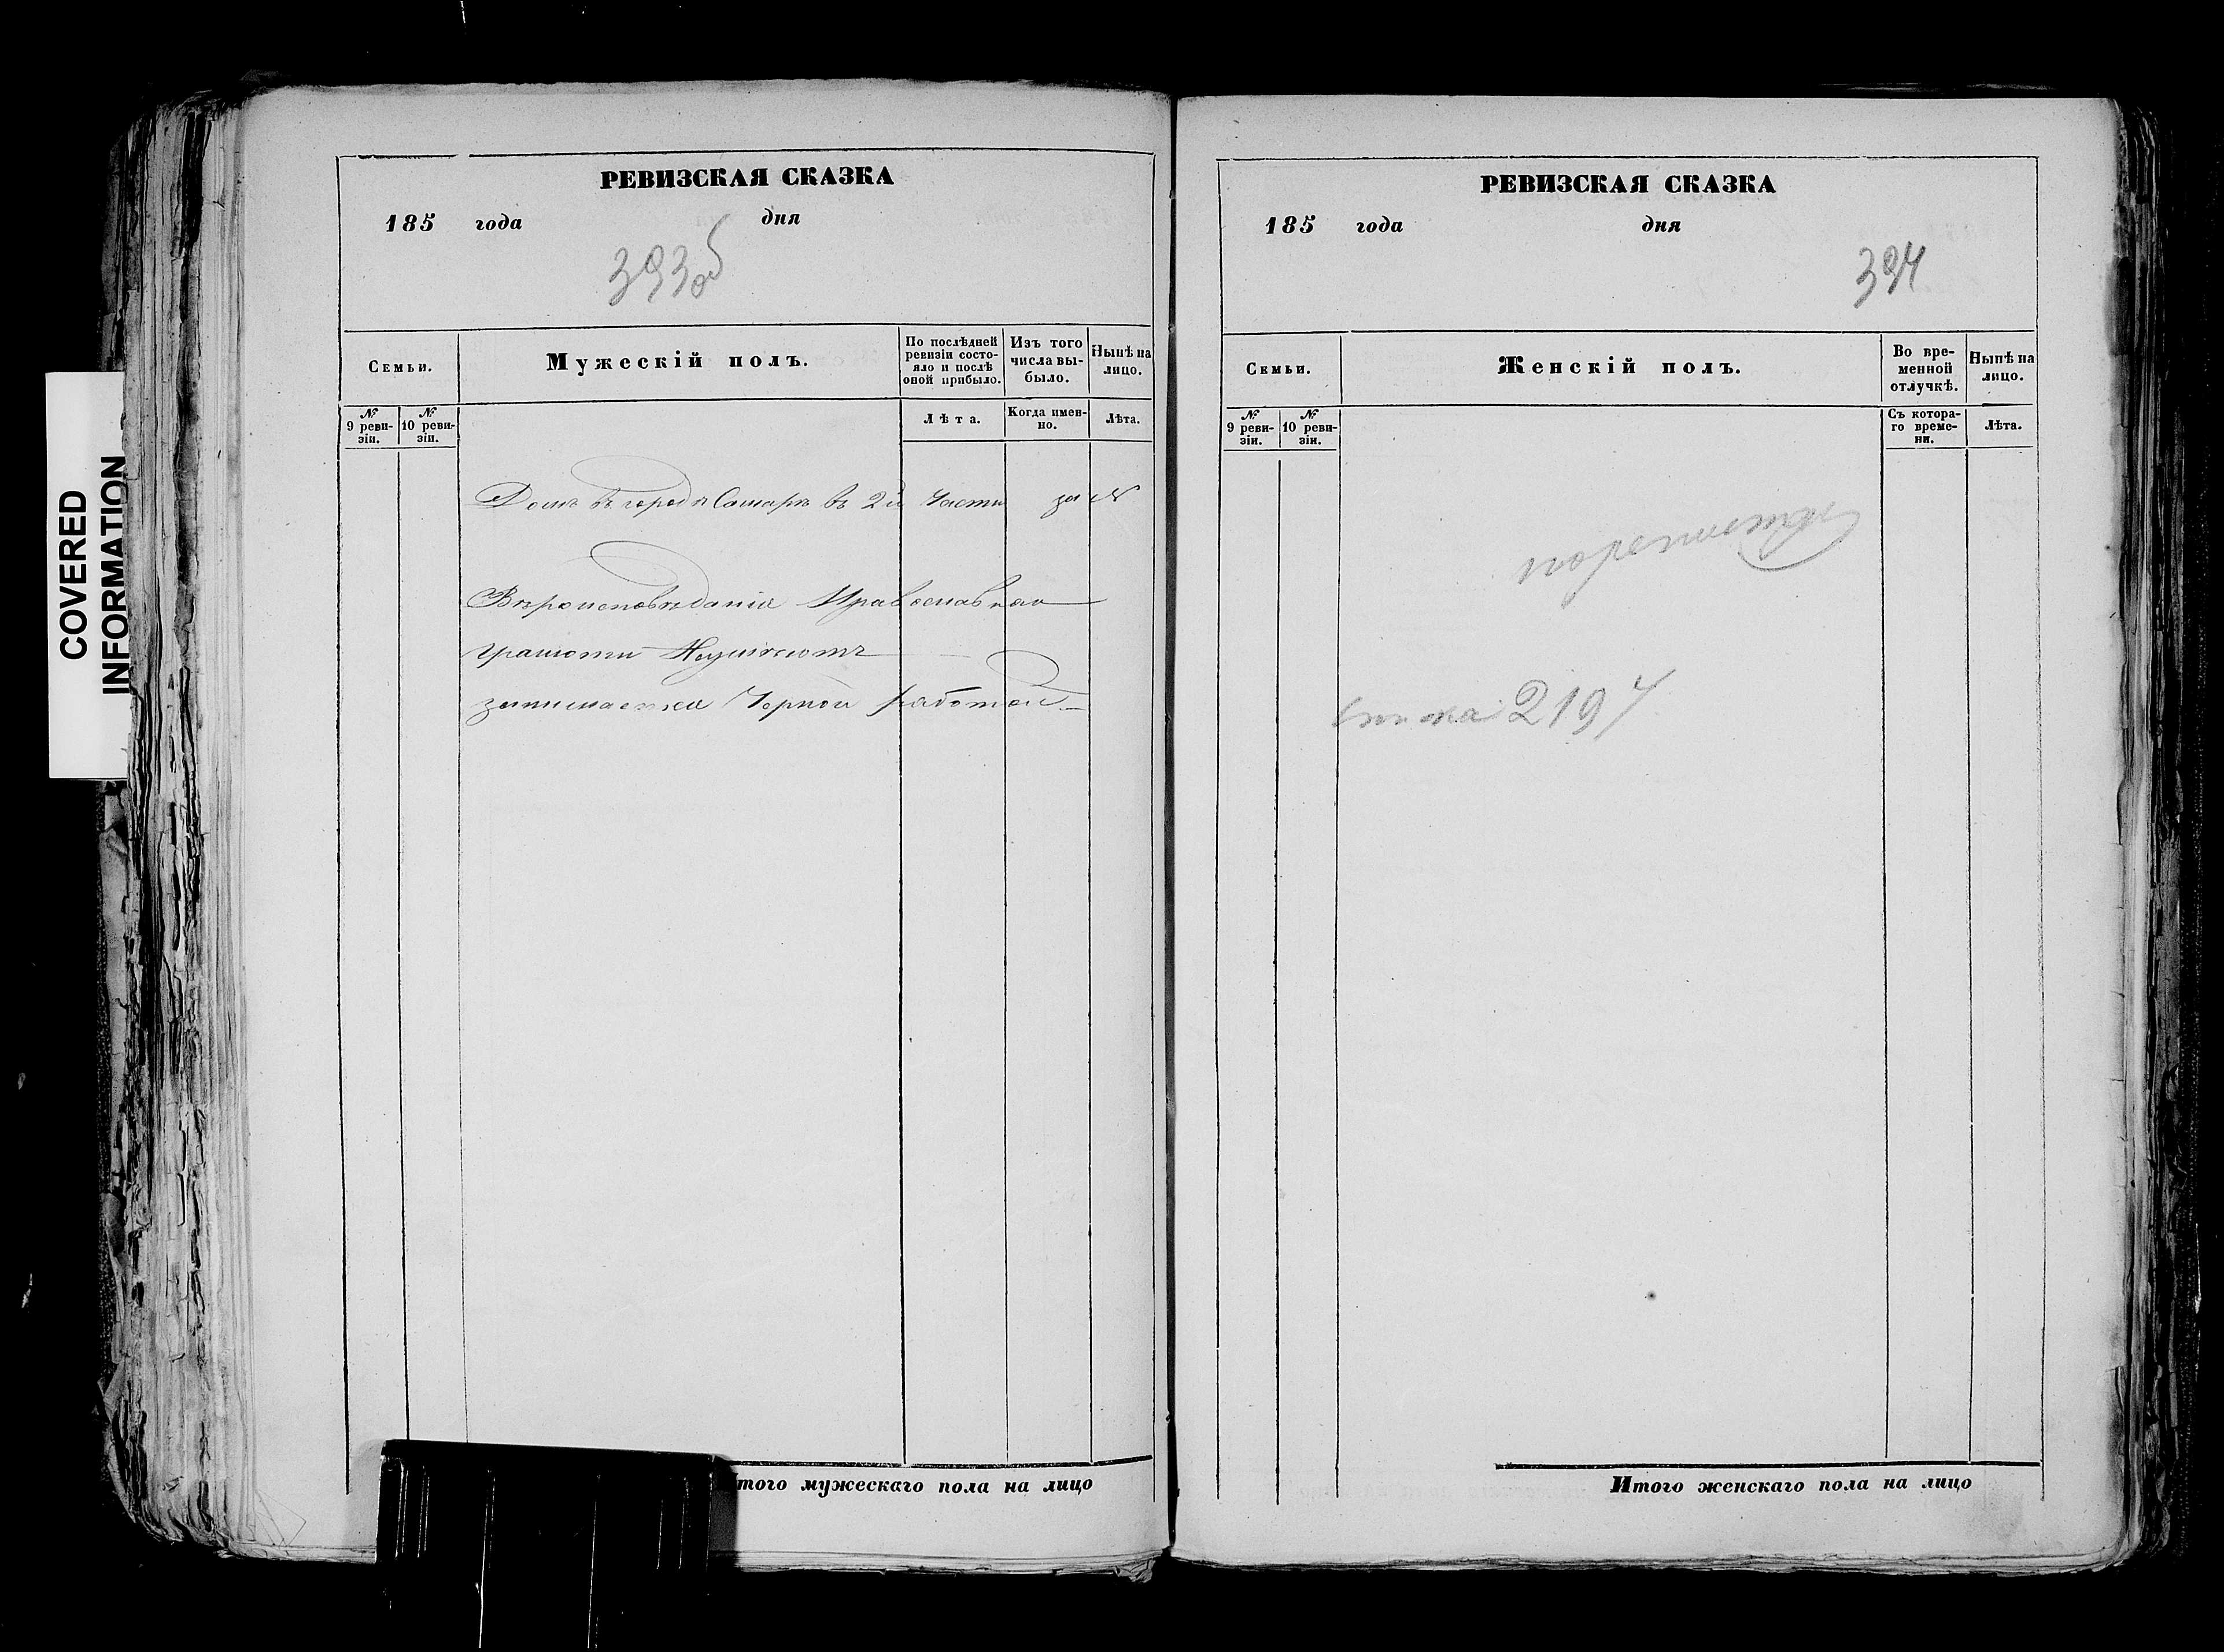 COVERED
INFORMATION
РЕВИЗСКАЯ СКАЗКА
185 года дня
393об
Семьи.
Мужескій полъ.
По послѣдней ревизіи состояло и послѣ оной прибыло.
Изъ того числа выбыло.
Нынѣ на лицо.
№ 9 ревизіи.
№ 10 ревизіи.
Лѣта.
Когда именно.
Лѣта.
Домъ въ городѣ Самарѣ въ 2й Части за №
Вѣроисповѣданія Православнаго
грамоти Неумѣютъ
занимается Черной работой
того мужескаго пола на лицо
РЕВИЗСКАЯ СКАЗКА
185 года дня
394
Семьи.
Женскій полъ.
Во временной отлучкѣ.
Нынѣ на лицо.
№ 9 ревизіи.
№ 10 ревизіи.
Съ котораго времени.
Лѣта.
2194
Итого женскаго пола на лицо